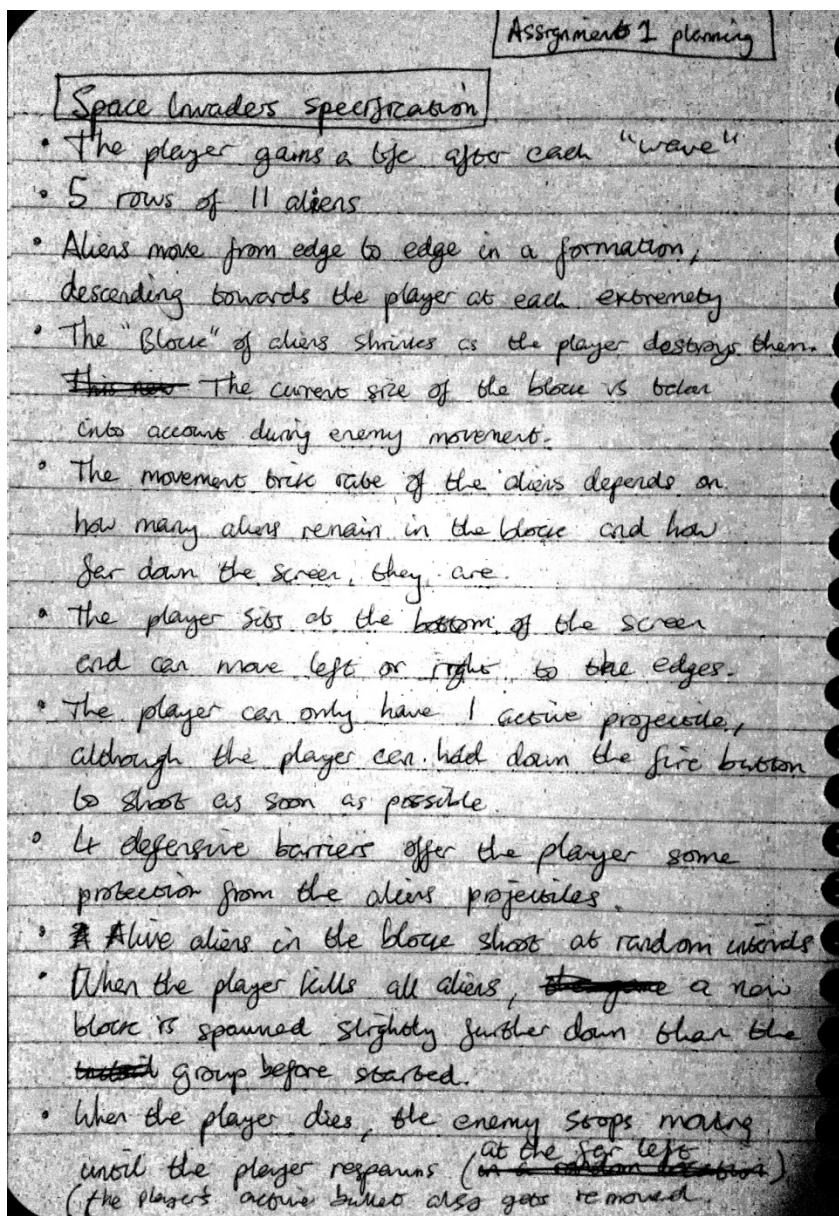 Assignment 1 planning
Space Invaders specification
• The player gains a life after each "wave"
• 5 rows of 11 aliens
• Aliens move from edge to edge in a formation,
descending towards the player at each extremety
• The "Block" of aliens shrinks as the player destroys them.
This new The current size of the block is taken
into account during enemy movement.
• The movement tick rate of the aliens depends on
how many aliens remain in the block and how
far down the screen, they are.
• The player sits at the bottom of the screen
and can move left or right to the edges.
• The player can only have 1 active projectile,
although the player can hold down the fire button
to shoot as soon as possible.
• 4 defensive barriers offer the player some
protection from the aliens projectiles.
• Alive aliens in the block shoot at random
• When the player kills all aliens, the game a new
block is spawned slightly further down than the
group before started.
• When the player dies, the enemy stops moving
at the far left
until the player respawns (in a random location)
(the player's active bullet also gets removed.